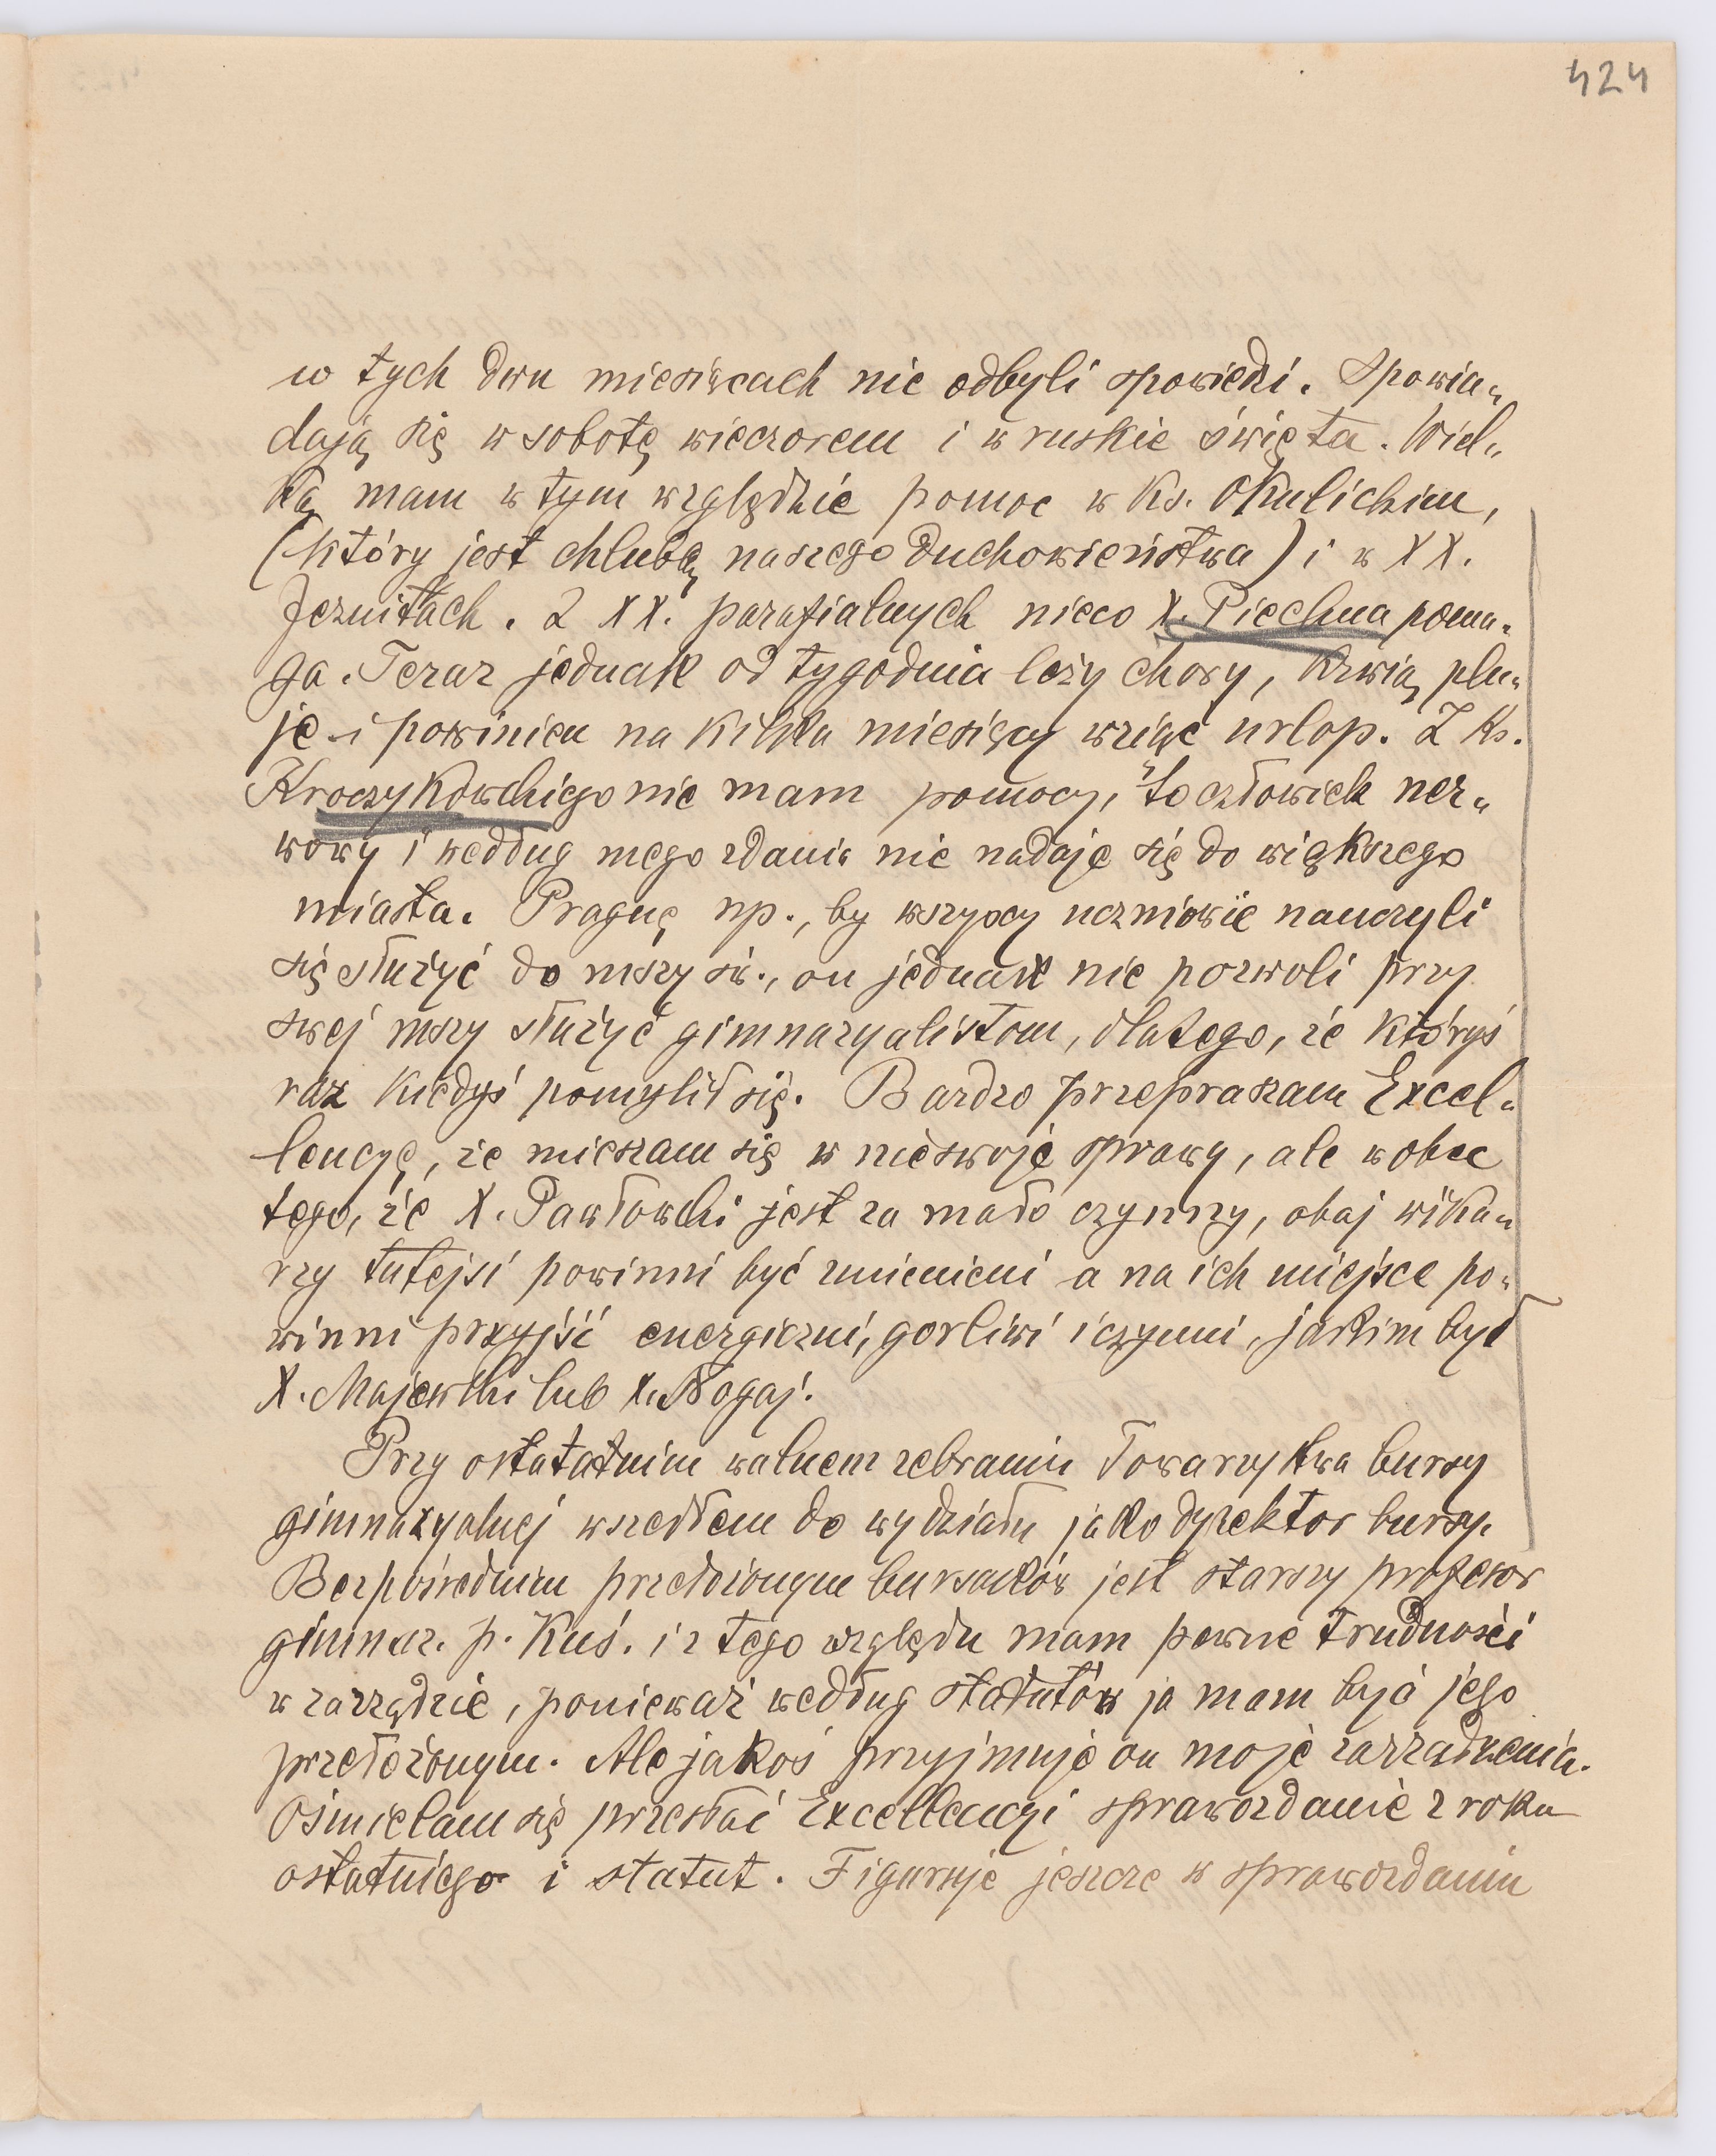 424
w tych dwu miesiącach nie odbyli spowiedzi. Spowia„
dają się w sobotę wieczorem i w ruskie święta. Wiel„
ką mam w tym względzie pomoc w Ks. Okulickim,
(który jest chlubą naszego duchowieństwa) i w XX.
Jezuitach. Z XX. parafialnych nieco X. Piechna poma„
ga. Teraz jednak od tygodnia leży chory, krwią plu„
je i powinien na kilka miesięcy wziąć urlop. Z Ks.
Kroczykowskiego nie mam pomocy, to człowiek ner„
wowy i według mego zdania nie nadaje się do większego
miasta. Pragnę np., by wszyscy uczniowie nauczyli
się służyć do mszy św., on jednak nie pozwoli przy
swej mszy służyć gimnazyalistom, dlatego, że któryś
raz kiedyś pomylił się. Bardzo przepraszam Excel„
lencyę, że mieszam się w nieswoje sprawy, ale wobec
tego, że X. Pawłowski jest za mało czynny, obaj wika„
rzy tutejsi powinni być zmienieni a na ich miejsce po„
winni przyjść energiczni, gorliwi i czynni, jakim był
X. Majewski lub X. Nogaj.
Przy ostatatnim walnem zebraniu Towarzystwa bursy
gimnazyalnej wszedłem do wydziału jako dyrektor bursy.
Bezpośrednim przełożonym bursaków jest starszy profesor
gimnaz. p. Kuś. i z tego względu mam pewne trudności
w zarządzie, ponieważ według statutów ja mam być jego
przełożonym. Ale jakoś przyjmuje on moje zarządzenia.
Ośmielam się przesłać Excellencyi sprawozdanie z roku
ostatniego i statut. Figuruje jeszcze w sprawozdaniu